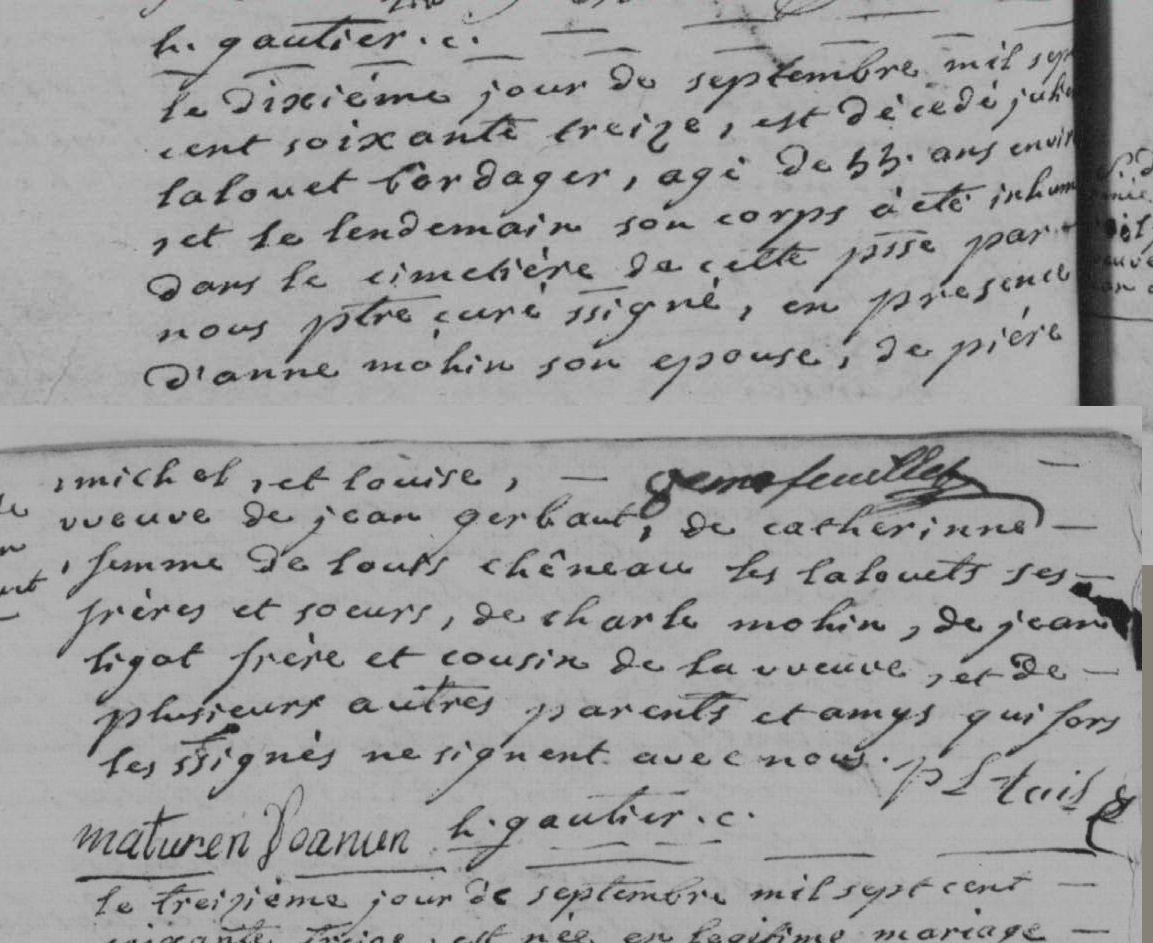 h. gautier. c.
le dixiéme jour de septembre mil sep
cent soixante treize, est décedé
lalouet bordager, agé de 55. ans envir
, et le lendemain son corps à été inhum
dans le cimetiére de cette psse par
nous ptre curé ssigné, en presence
d'anne mohin son epouse, de piére
, michel, et louise,
vveuve de jean gerbaut, de catherinne
, femme de louis chêneau les lalouets ses
frères et soeurs, de charle mohin, de jean
ligot frère et cousin de la vveuve, et de
plusieurs autres parents et amys qui fors
les ssignés ne signent avec nous.
maturen h. gautier. c.
le treiziéme jour de septembre mil sept cent
soixante treize, est née en legitime mariage